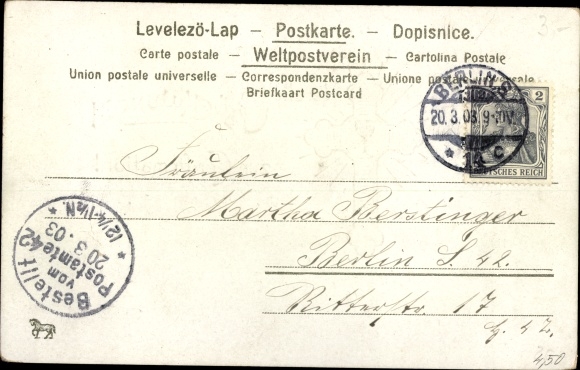 Levelezö-Lap – Postkarte. – Dopisnice.
Carte postale – Weltpostverein – Cartolina Postale
Union postale universelle – Correspondenzkarte – Unione
Briefkaart Postcard
3-
BERLIN S
20.3.03. 9-10V.
* 14 c
2
DEUTSCHES REICH
Fräulein
Martha Berstinger
Berlin S. 42.
Ritterstr. 17
Bestellt
vom
Postamte 42
20 3. 03
* 12¼-1½N. *
4,50